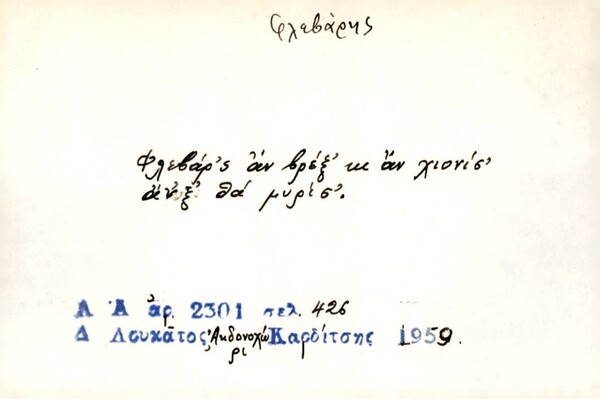 Φλεβάρης
Φλεβάρ'ς ἄν βρέξ' κι ἄν χιονίσ'
ἄν'ξ' θά μυρίσ'.
Λ Ἀ ἀρ. 2301 σελ. 426
Δ Λουκᾶτος, Ἀηδονοχώρι Καρδίτσης 1959.